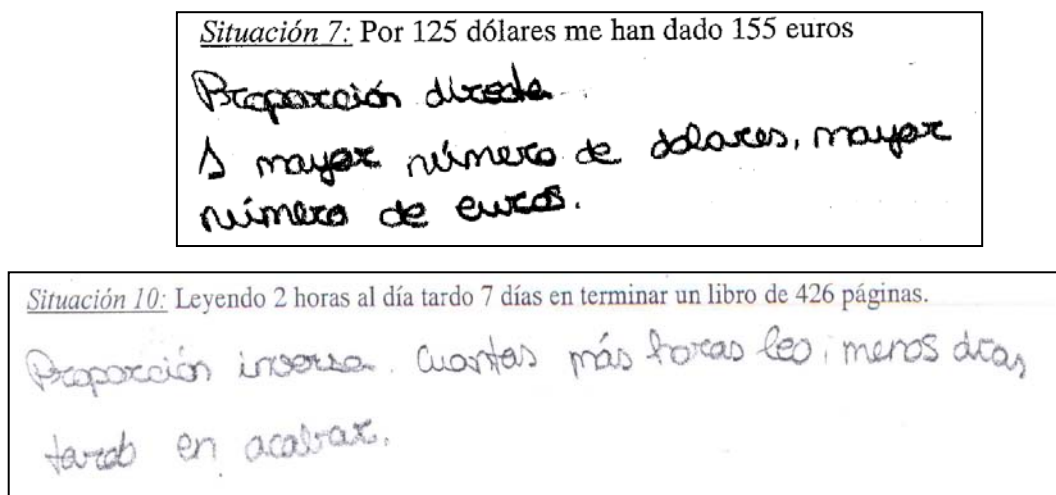 Situación 7: Por 125 dólares me han dado 155 euros
Proporción directa.
A mayor número de dolares, mayor
número de euros.
Situación 10: Leyendo 2 horas al día tardo 7 días en terminar un libro de 426 páginas.
Proporción inversa. Cuantas más horas leo, menos días
tardo en acabar.